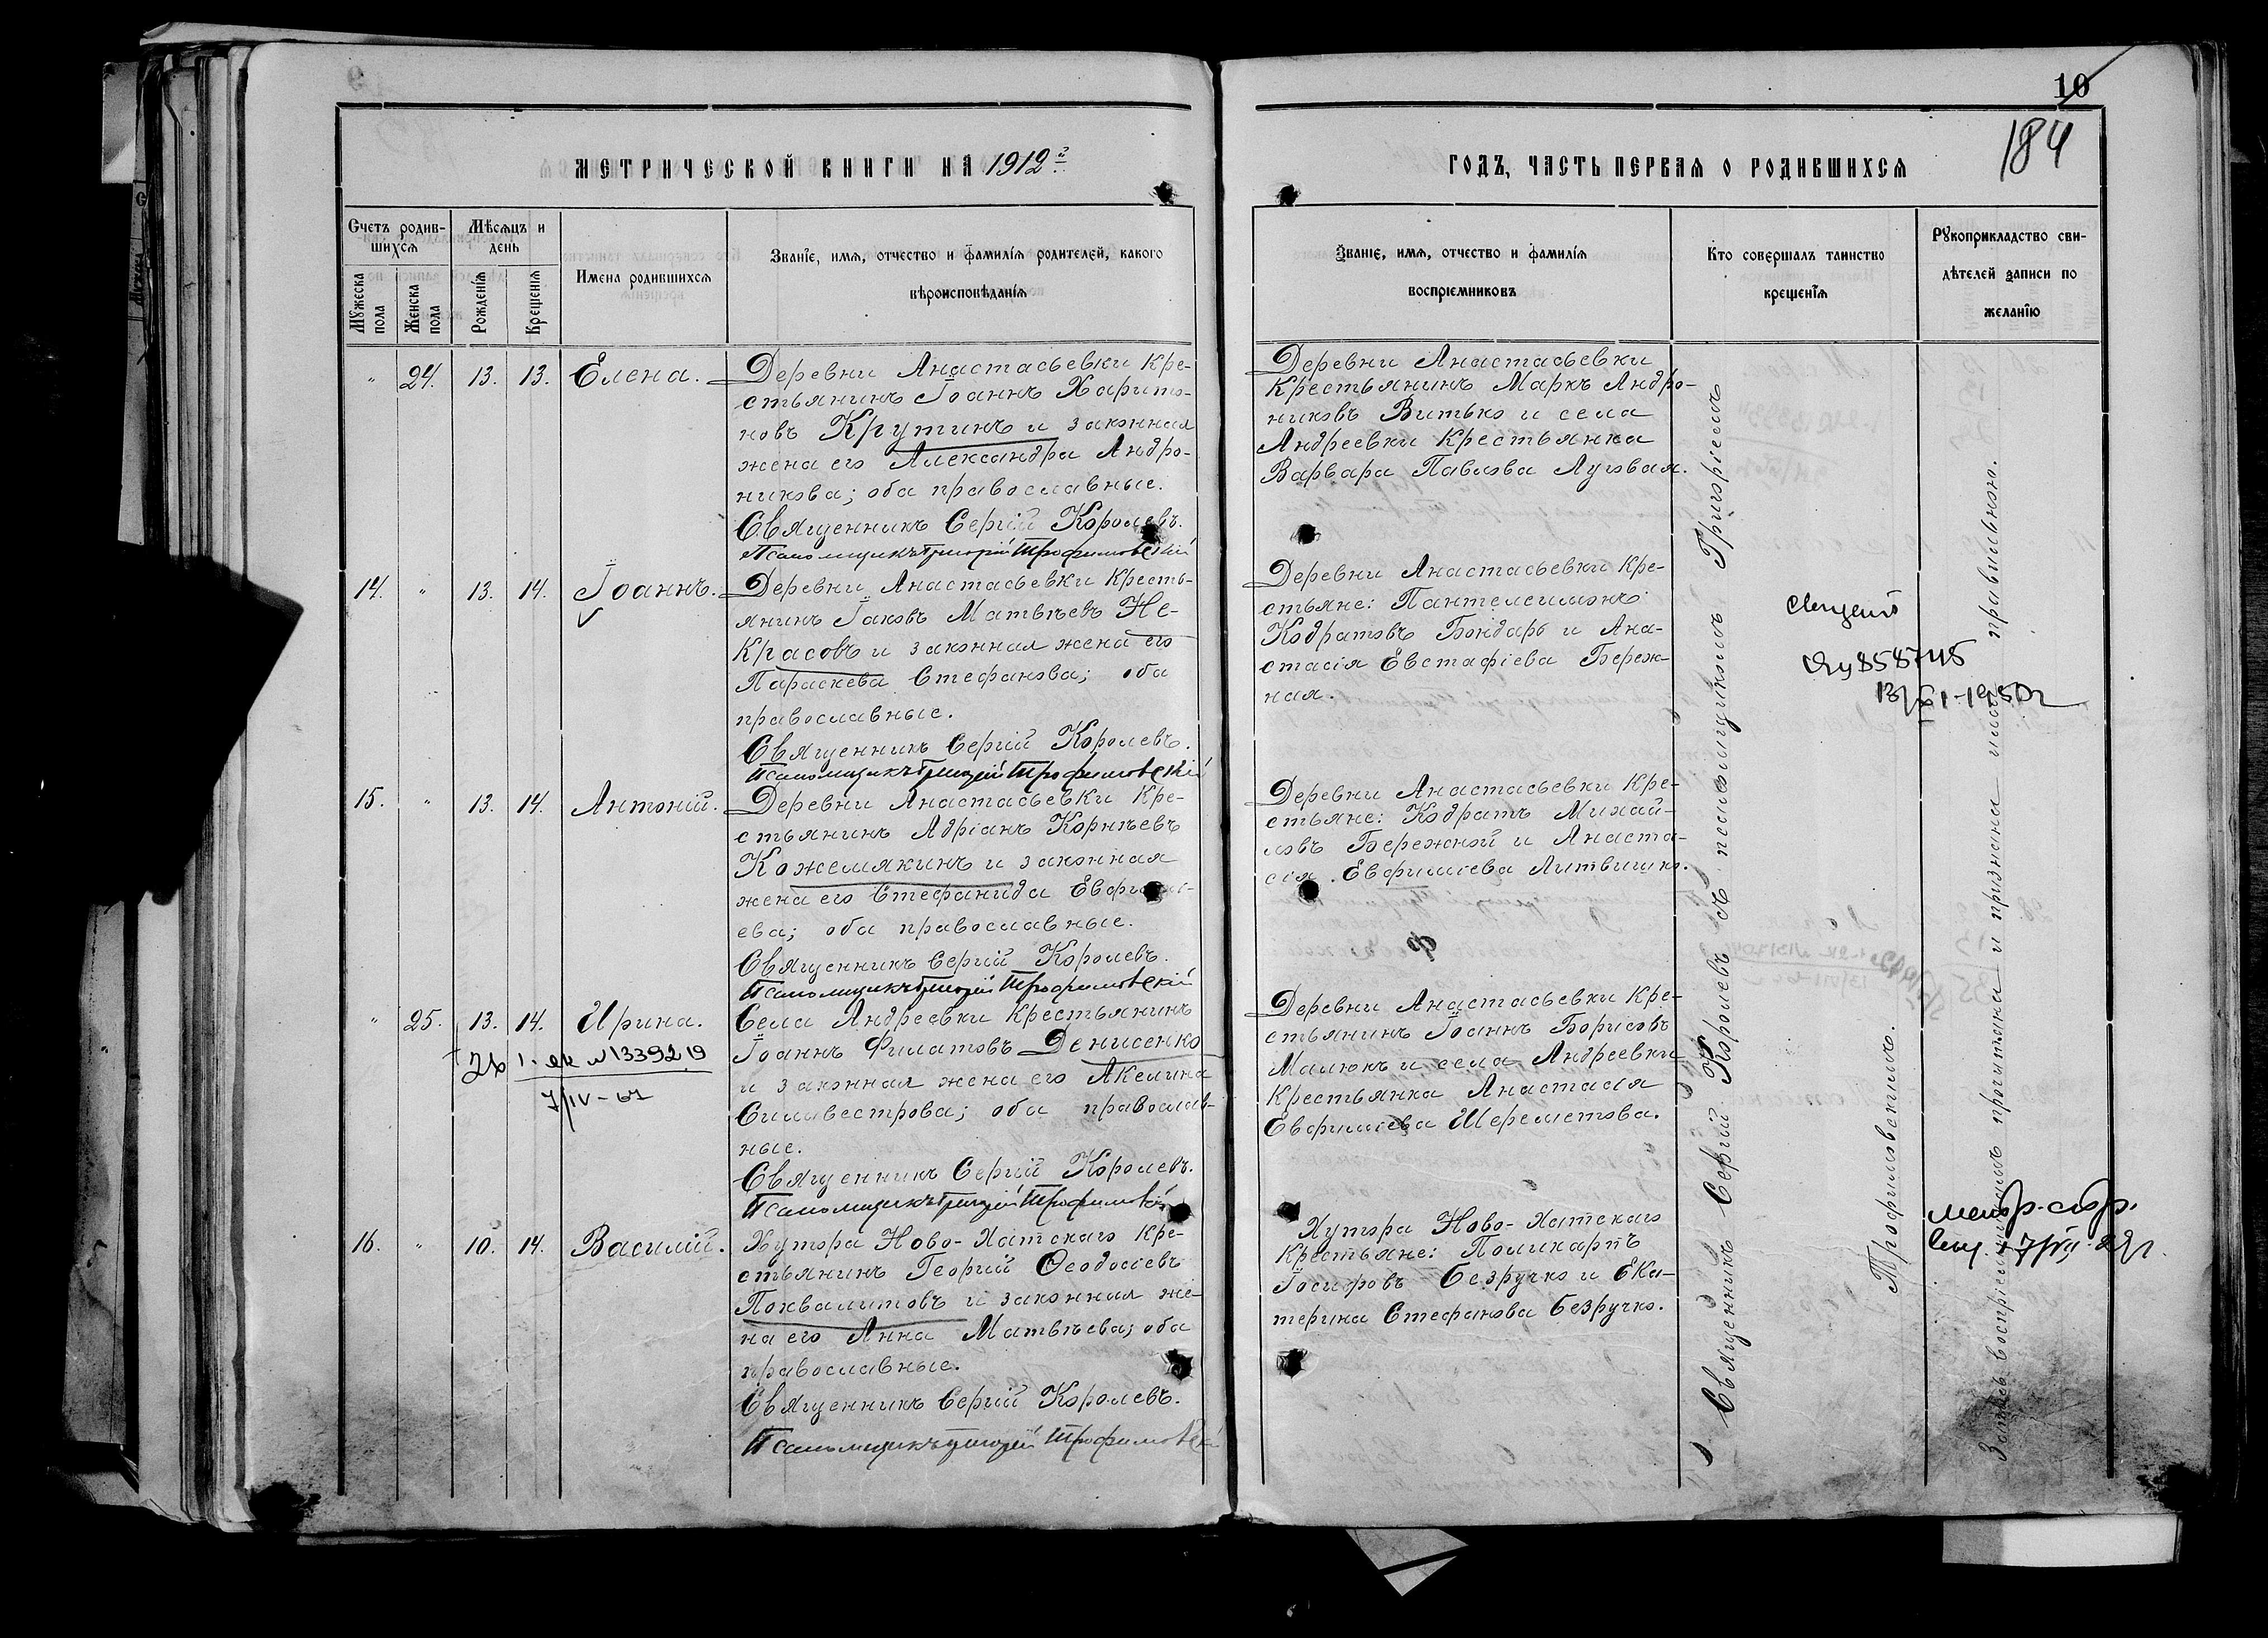 10
184
МЕТРИЧЕСКОЙ КНИГИ НА 1912й
ГОДЪ, ЧАСТЬ ПЕРВАЯ О РОДИВШИХСЯ
Счетъ родив-
шихся
Мѣсяцъ и
день
Мужеска
пола
Женска
пола
Рожденія
Крещенія
Имена родившихся
Званіе, имя, отчество и фамилія родителей, какого
вѣроисповѣданія
Званіе, имя, отчество и фамилія
воспріемниковъ
Кто совершалъ таинство
крещенія
Рукоприкладство сви-
дѣтелей записи по
желанію
" 24. 13. 13. Елена.
Деревни Анастасьевки Кре-
стьянинъ Іоаннъ Харито-
новъ Крутинъ и законная
жена его Александра Андро-
никова; оба православные.
Священникъ Сергій Королевъ.
Псаломщикъ Григорій Трофимовскій
Деревни Анастасьевки
Крестьянинъ Маркъ Андро-
никовъ Витько и села
Андреевки Крестьянка
Варвара Павлова Луговая.
14. " 13. 14. Іоаннъ.
Деревни Анастасьевки Кресть-
янинъ Іаковъ Матвѣевъ Не-
красовъ и законная жена его
Параскева Стефанова; оба
православные.
Священникъ Сергій Королевъ.
Псаломщикъ Григорій Трофимовскій
Деревни Анастасьевки Кре-
стьяне: Пантелеимонъ
Кодратовъ Бондарь и Ана-
стасія Евстафіева Береж-
ная.
15. " 13. 14. Антоній.
Деревни Анастасьевки Кре-
стьянинъ Адріанъ Корнѣевъ
Кожемякинъ и законная
жена его Стефанида Евфимі-
ева; оба православные.
Священникъ Сергій Королевъ.
Псаломщикъ Григорій Трофимовскій
Деревни Анастасьевки Кре-
стьяне: Кодратъ Михай-
ловъ Бережной и Анаста-
сія Евфиміева Литвишко.
" 25. 13. 14. Ирина.
№ 1339219
7/IV-67
Села Андреевки Крестьянинъ
Іоаннъ Филатовъ Денисенко
и законная жена его Акелина
Сильвестрова; оба православ-
ные.
Священникъ Сергій Королевъ.
Псаломщикъ Григорій Трофимовскій
Деревни Анастасьевки Кре-
стьянинъ Іоаннъ Борисовъ
Малюкъ и села Андреевки
Крестьянка Анастасія
Евфиміева Шереметова.
16. " 10. 14. Василій.
Хутора Ново-Хатскаго Кре-
стьянинъ Георгій Ѳеодосіевъ
Похвалитовъ и законная же-
на его Анна Матвѣева; оба
православные.
Священникъ Сергій Королевъ.
Псаломщикъ Григорій Трофимовскій
Хутора Ново-Хатскаго
Крестьяне: Поликарпъ
Іосифовъ Безручко и Ека-
терина Стефанова Безручко.
Священникъ Сергій Королевъ съ псаломщикомъ Григоріемъ
Трофимовскимъ.
858745